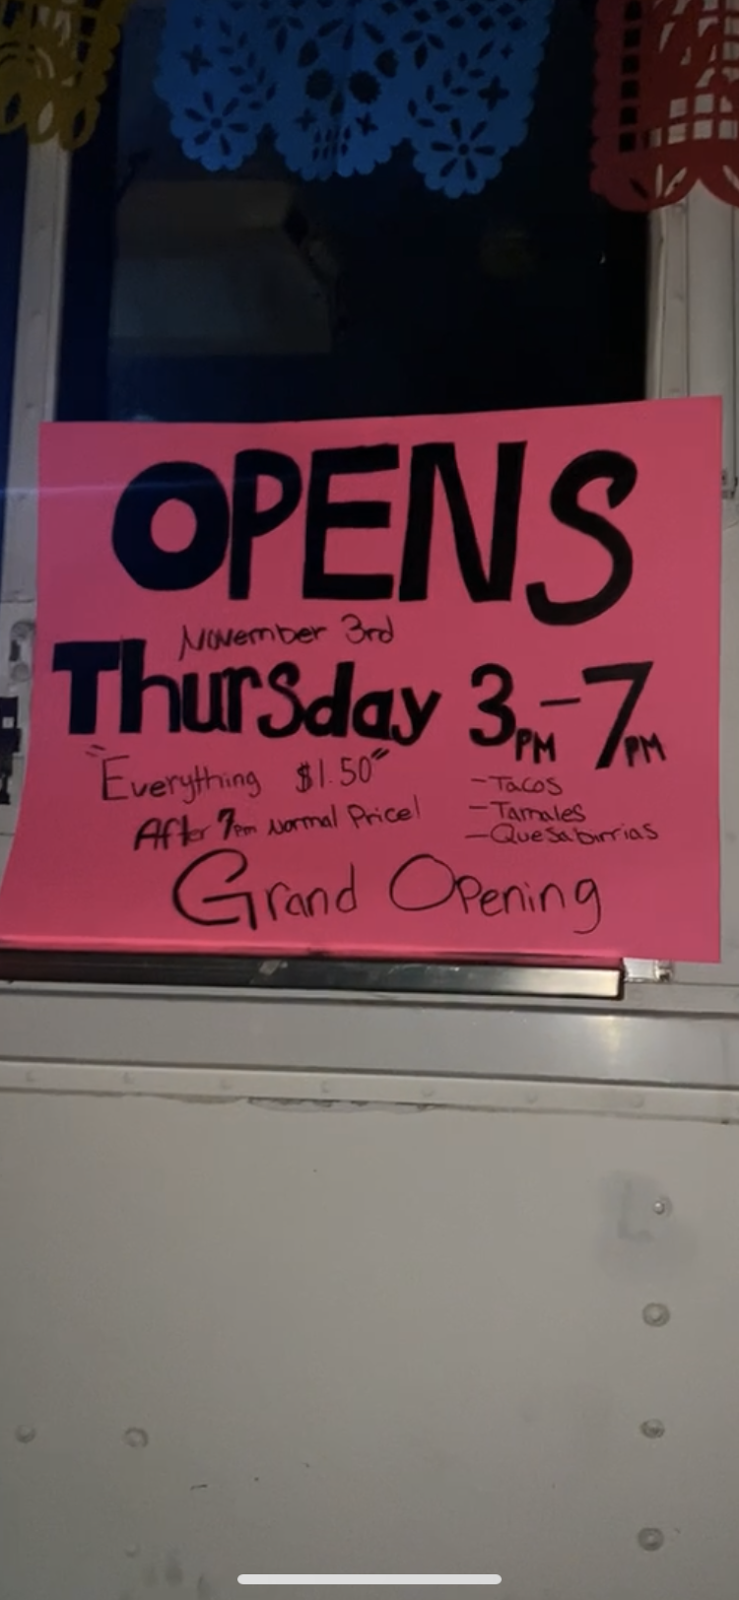 OPENS
November 3rd
Thursday 3PM-7PM
"Everything $1.50"
After 7pm Normal Price!
-Tacos
-Tamales
-Quesabirrias
Grand Opening